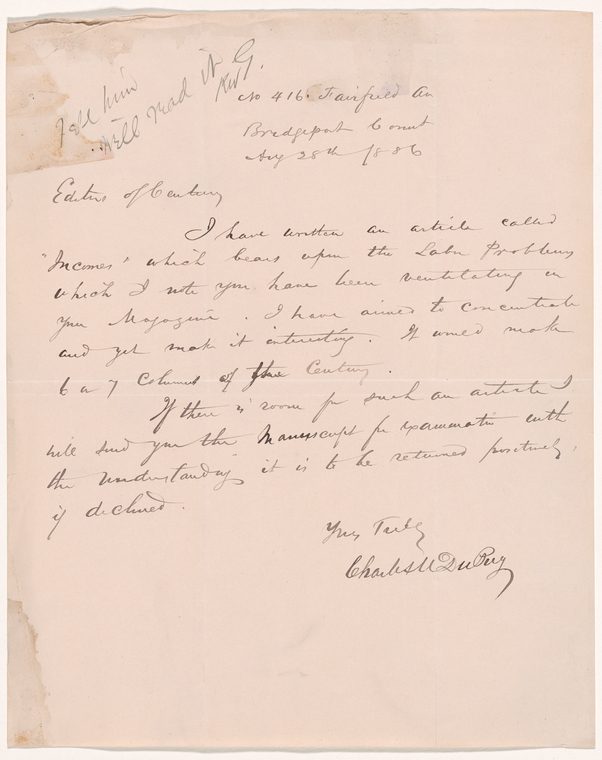 Tell him
we'll read it G.
No 416. Fairfield Av
Bridgeport Connt
Aug 28th 1886
Editors of Century
I have written an article called
"Incomes" which bears upon the Labor Problems
which I note you have been ventilating in
your Magazine. I have aimed to concentrate
and yet make it interesting. It would make
6 or 7 columns of the Century.
If there is room for such an article I
will send you the Manuscript for examination with
the understanding it is to be returned positively,
if declined.
Yours Truly
Charles H DuPuy